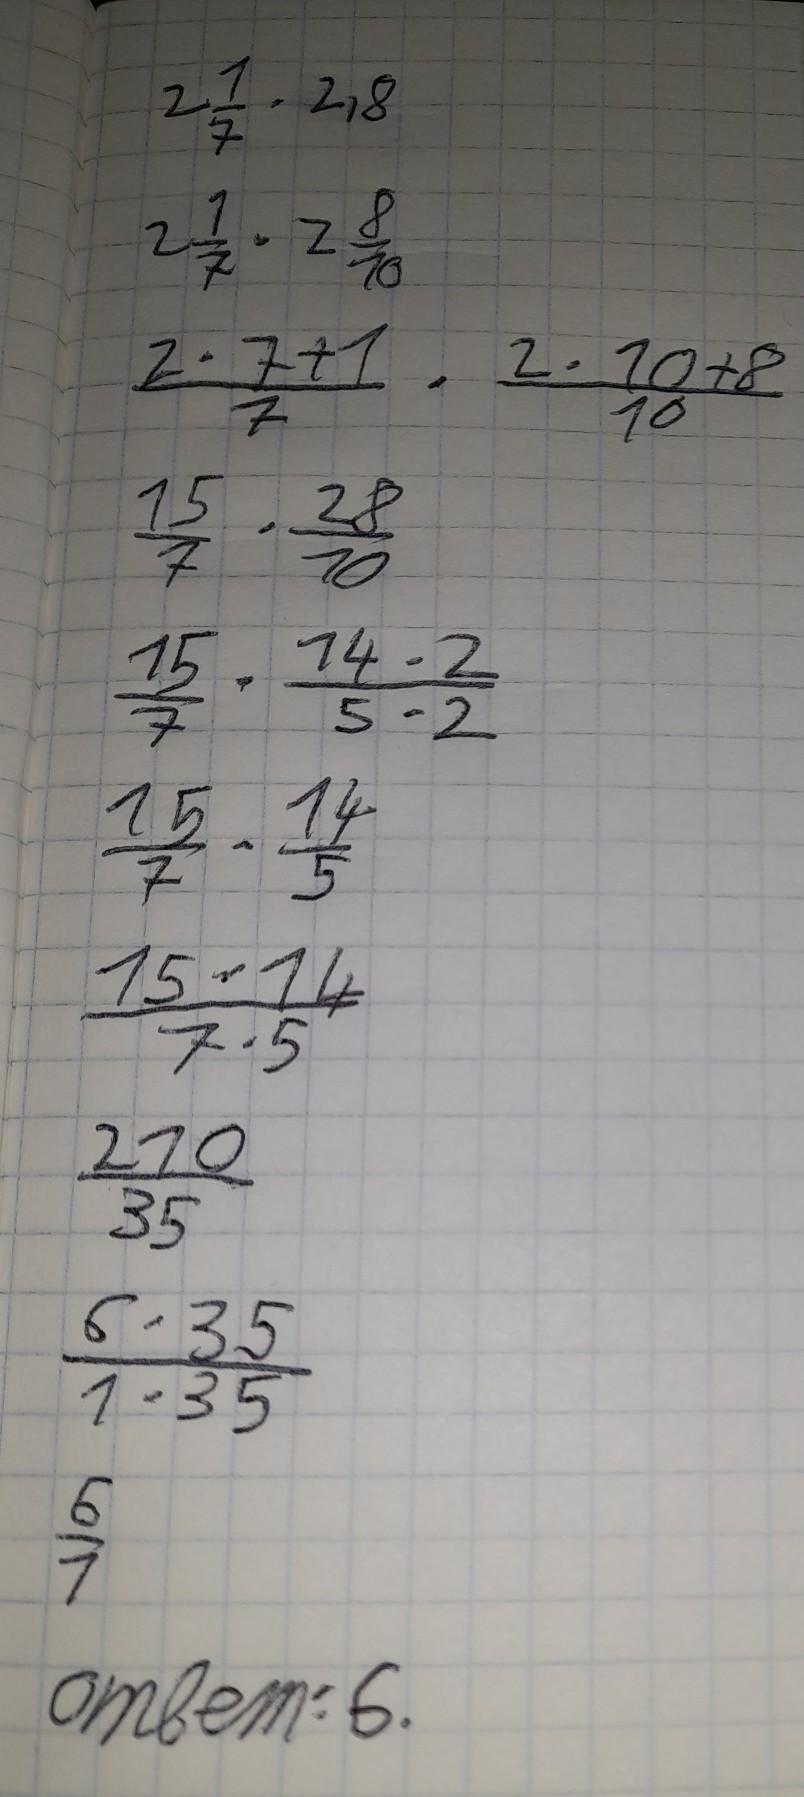 2 1/7 · 2,8
2 1/7 · 2 8/10
(2 · 7+1)/7 · (2 · 10+8)/10
15/7 · 28/10
15/7 · (14 · 2)/(5 · 2)
15/7 · 14/5
(15 · 14)/(7 · 5)
210/35
(6 · 35)/(1 · 35)
6/1
ответ: 6.